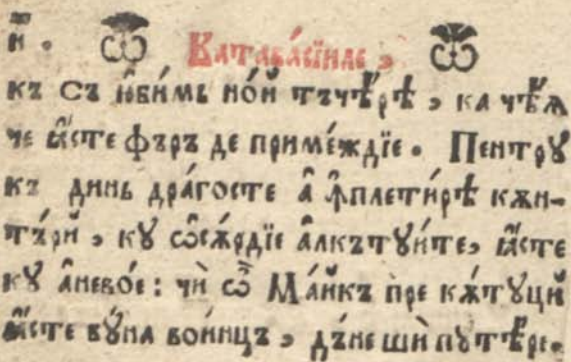 н҃. Ѿ Катава́сїиле, Ѿ
къ съ ю҆би́мь но́й тъчѣ́рѣ, ка чѣѧ
че ꙗ҆́сте фъръ де приме́ждїе. Пентрꙋ
къ динь дра́госте а҆ ꙟ҆плети́рѣ кѫн-
тъ́рй, кꙋ ѡ҆сѫ́рдїе а҆лкътꙋи́те, ꙗ҆́сте
кꙋ а҆нево́е: чѝ ѽ Ма́йкъ пре кѫ́тꙋцй
ꙗ҆́сте вꙋ́на вои́нцъ, дъ́не шѝ пꙋтѣ́ре.